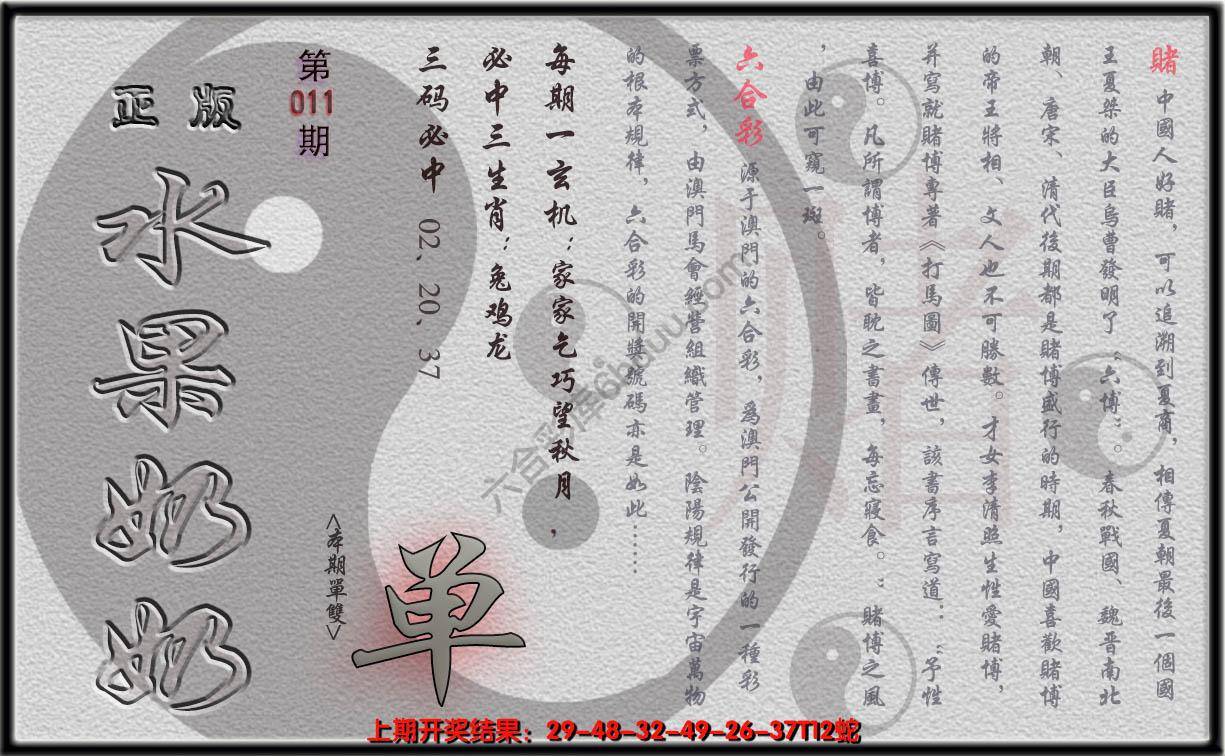 賭 中國人好賭，可以追溯到夏商，相傳夏朝最後一個國
王夏桀的大臣烏曹發明了“六博”。春秋戰國、魏晋南北
朝、唐宋、清代後期都是賭博盛行的時期，中國喜歡賭博
的帝王將相、文人也不可勝數。才女李清照生性愛賭博，
并寫就賭博專著《打馬圖》傳世，該書序言寫道：“予性
喜博。凡所謂博者，皆耽之書畫，每忘寢食。”賭博之風
，由此可窺一斑。
六合彩 源于澳門的六合彩，爲澳門公開發行的一種彩
票方式，由澳門馬會經營組織管理。陰陽規律是宇宙萬物
的根本規律，六合彩的開獎號碼亦是如此……
每期一玄机：家家乞巧望秋月，
必中三生肖：兔鸡龙
三码必中 02、20、37
第
011
期
<本期單雙>
单
正版
水果奶奶
賭
六合彩库6huuu.com
上期开奖结果：29-48-32-49-26-37T12蛇